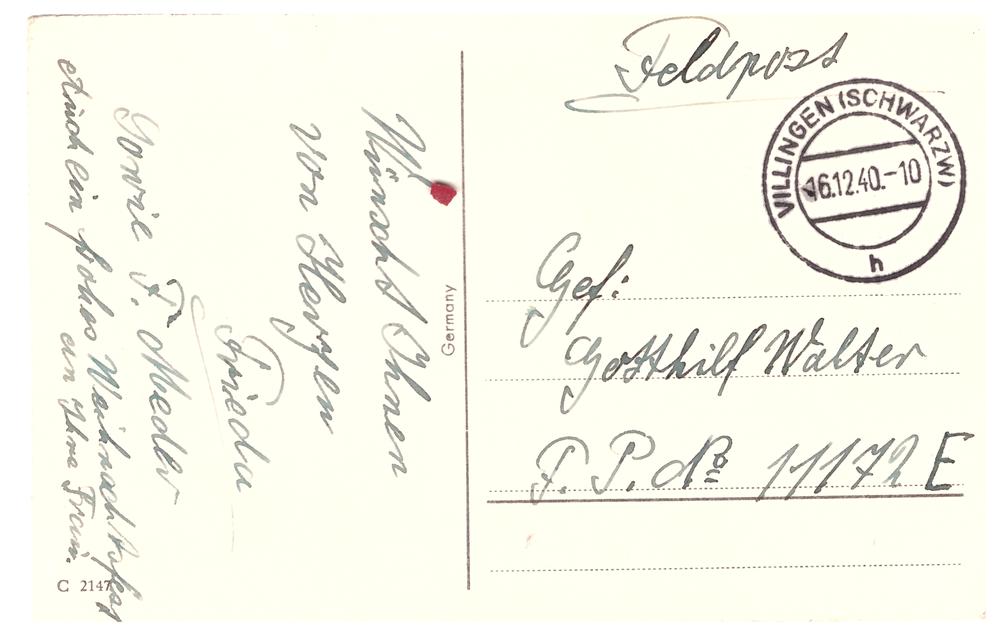 Wünscht Ihnen
von Herzen
Frieda
Sowie F. Meder
Auch ein frohes Weihnachtsfest
an Ihre Frau.
C 2147
Germany
Feldpost
VILLINGEN (SCHWARZW)
16.12.40.-10
h
Gef:
Gotthilf Walter
F. P. No 11172 E